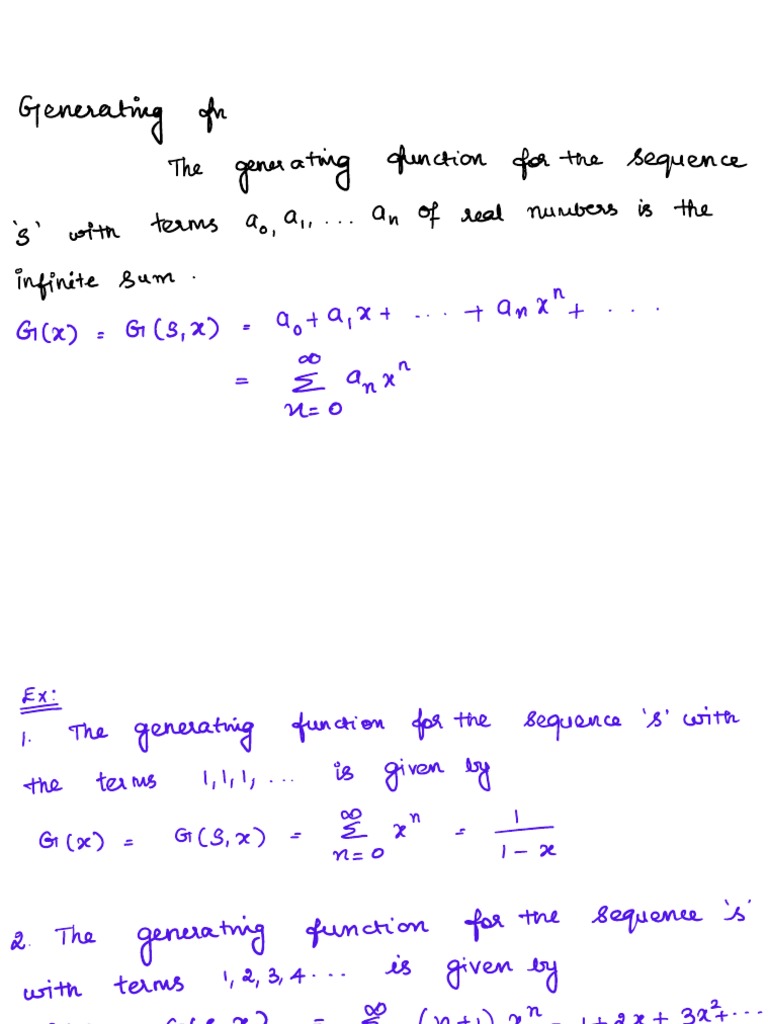 Generating fn
The generating function for the sequence
's' with terms a₀, a₁, ... aₙ of real numbers is the
infinite sum.
G(x) = G(S,x) = a₀ + a₁x + ... + aₙxⁿ + ...
= ∞ Σ n=0 aₙxⁿ
Ex:
1. The generating function for the sequence 's' with
the terms 1,1,1,... is given by
G(x) = G(S,x) = ∞ Σ n=0 xⁿ = 1/(1-x)
2. The generating function for the sequence 's'
with terms 1,2,3,4... is given by
G(S,x) = ∞ Σ (n+1)xⁿ = 1+2x+3x²+...